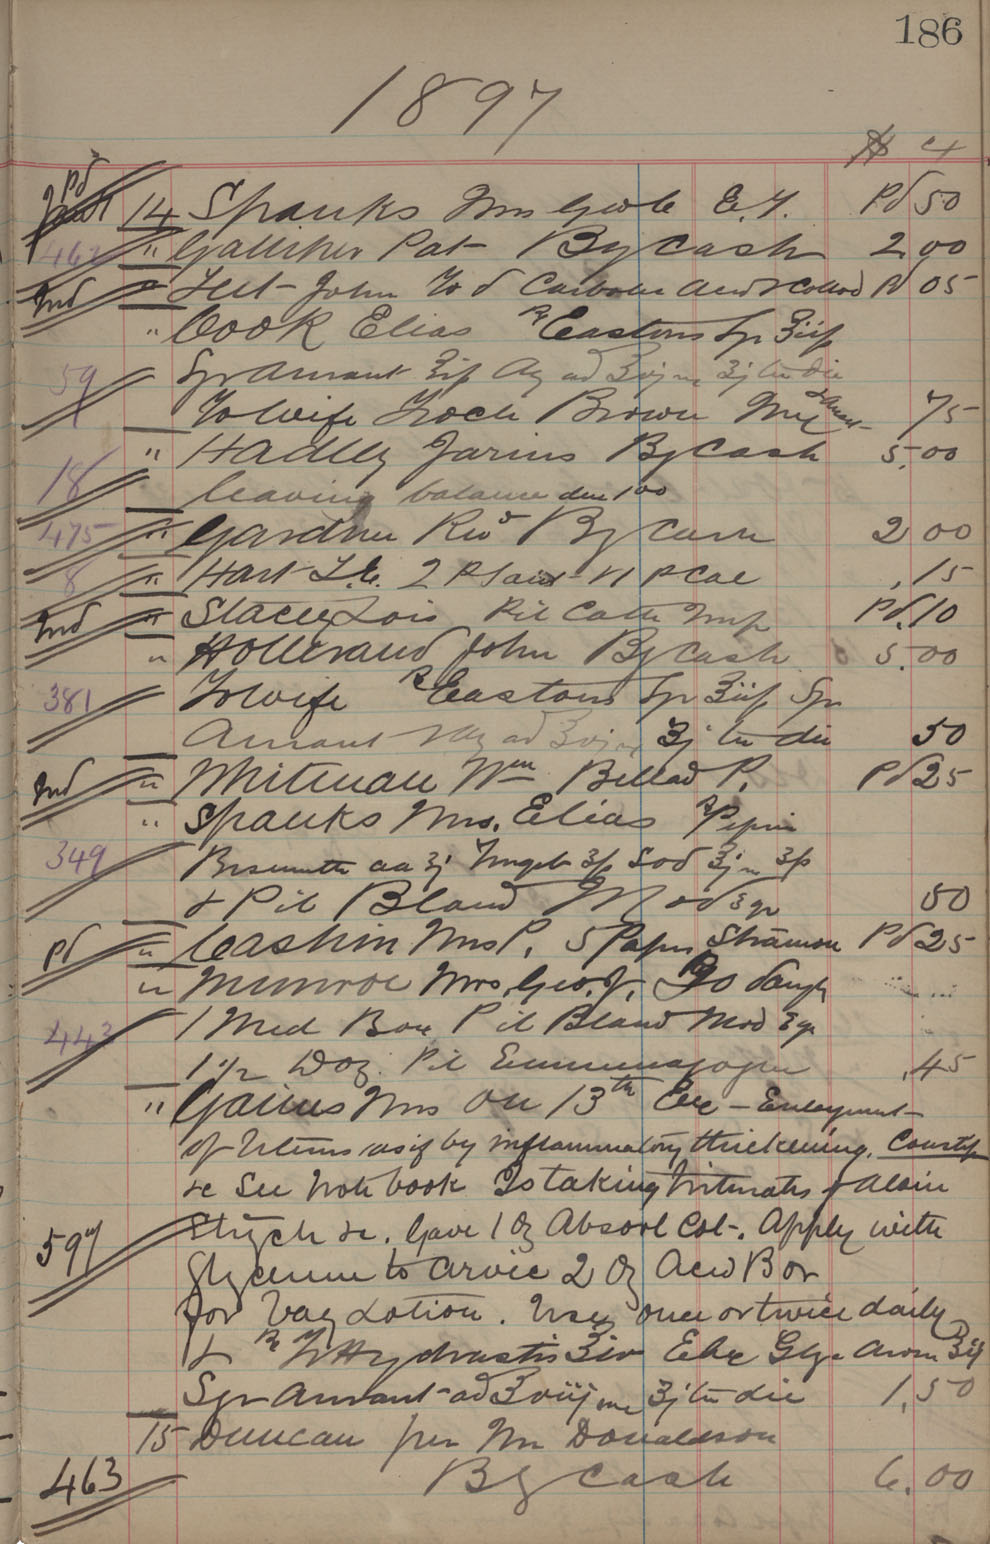 186
1897
$ ct
pd 14 Spanks Mrs E. Y. Pd 50
462 " Galliher Pat By Cash 2.00
Ind " John Pd 05
" Cook Elias ℞ Eastons Syr ℥iiſs
59 Syr Aurant ℥iſs Aq ad ℥vj ʒj ter die
To wife Brown Mix 75
18 " Hadley Jarius By Cash 5.00
leaving balance due 100
475 " Gardner Revd By Cash 2.00
8 " Hart 2 P .15
Ind " Stacey Lois Pil Cath Imp Pd .10
" Holleraud John By Cash 5.00
381 To wife ℞ Eastons Syr ℥iiſs Syr
Aurant Aq ad ℥vj ʒj ter die 50
Ind " Whitman Wm Bellad P. Pd 25
" Spanks Mrs. Elias ℞ Pepsin
349 Bismuth aa ʒj Sod
& Pil Blaud Mod 3 gr 50
pd " Cashin Mrs P. 5 Papers Stramon Pd 25
" Munroe Mrs. Geo. J. To daugh
443 1 Med Box Pil Blaud Mod 3 gr
1 1/2 Doz. Pil Emmenagogue .45
" Gaines Mrs on 13th Eve - Enlargement
of Uterus as if by inflammatory thickening. Constip
&c See Note book Is taking triturates of Aloin
597 Strych &c. Gave 1 oz Absorb Cot. Apply with
Glycerine to cervic 2 oz Acid Bor
for Vag Lotion. Use once or twice daily
& ℞ Hydrastis ℥iv Elix Glyc Arom ℥ij
Syr Aurant ad ℥viij ʒj ter die 1.50
15 Duncan per Mr Donaldson
463 By Cash 6.00